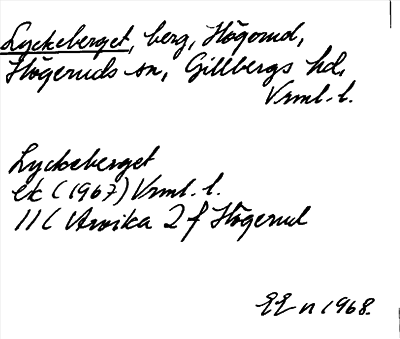 Lyckeberget, berg, Högerud,
Högeruds sn, Gillbergs hd,
Vrml. l.
Lyckeberget
ek (1967) Vrml. l.
11C Arvika 2f Högerud
EE n 1968.